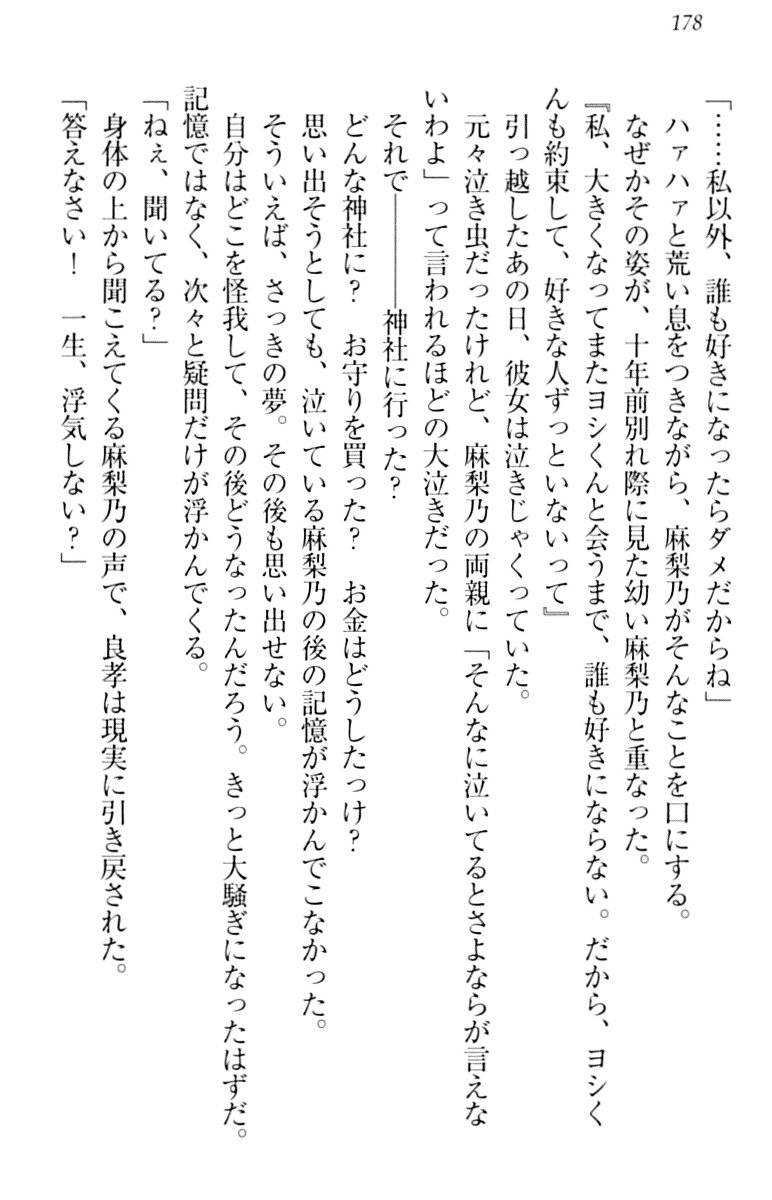 178
「……私以外、誰も好きになったらダメだからね」
　ハァハァと荒い息をつきながら、麻梨乃がそんなことを口にする。
　なぜかその姿が、十年前別れ際に見た幼い麻梨乃と重なった。
『私、大きくなってまたヨシくんと会うまで、誰も好きにならない。だから、ヨシく
んも約束して、好きな人ずっといないって』
　引っ越したあの日、彼女は泣きじゃくっていた。
　元々泣き虫だったけれど、麻梨乃の両親に「そんなに泣いてるとさよならが言えな
いわよ」って言われるほどの大泣きだった。
　それで――――神社に行った？
　どんな神社に？　お守りを買った？　お金はどうしたっけ？
　思い出そうとしても、泣いている麻梨乃の後の記憶が浮かんでこなかった。
　そういえば、さっきの夢。その後も思い出せない。
　自分はどこを怪我して、その後どうなったんだろう。きっと大騒ぎになったはずだ。
記憶ではなく、次々と疑問だけが浮かんでくる。
「ねぇ、聞いてる？」
　身体の上から聞こえてくる麻梨乃の声で、良孝は現実に引き戻された。
「答えなさい！　一生、浮気しない？」